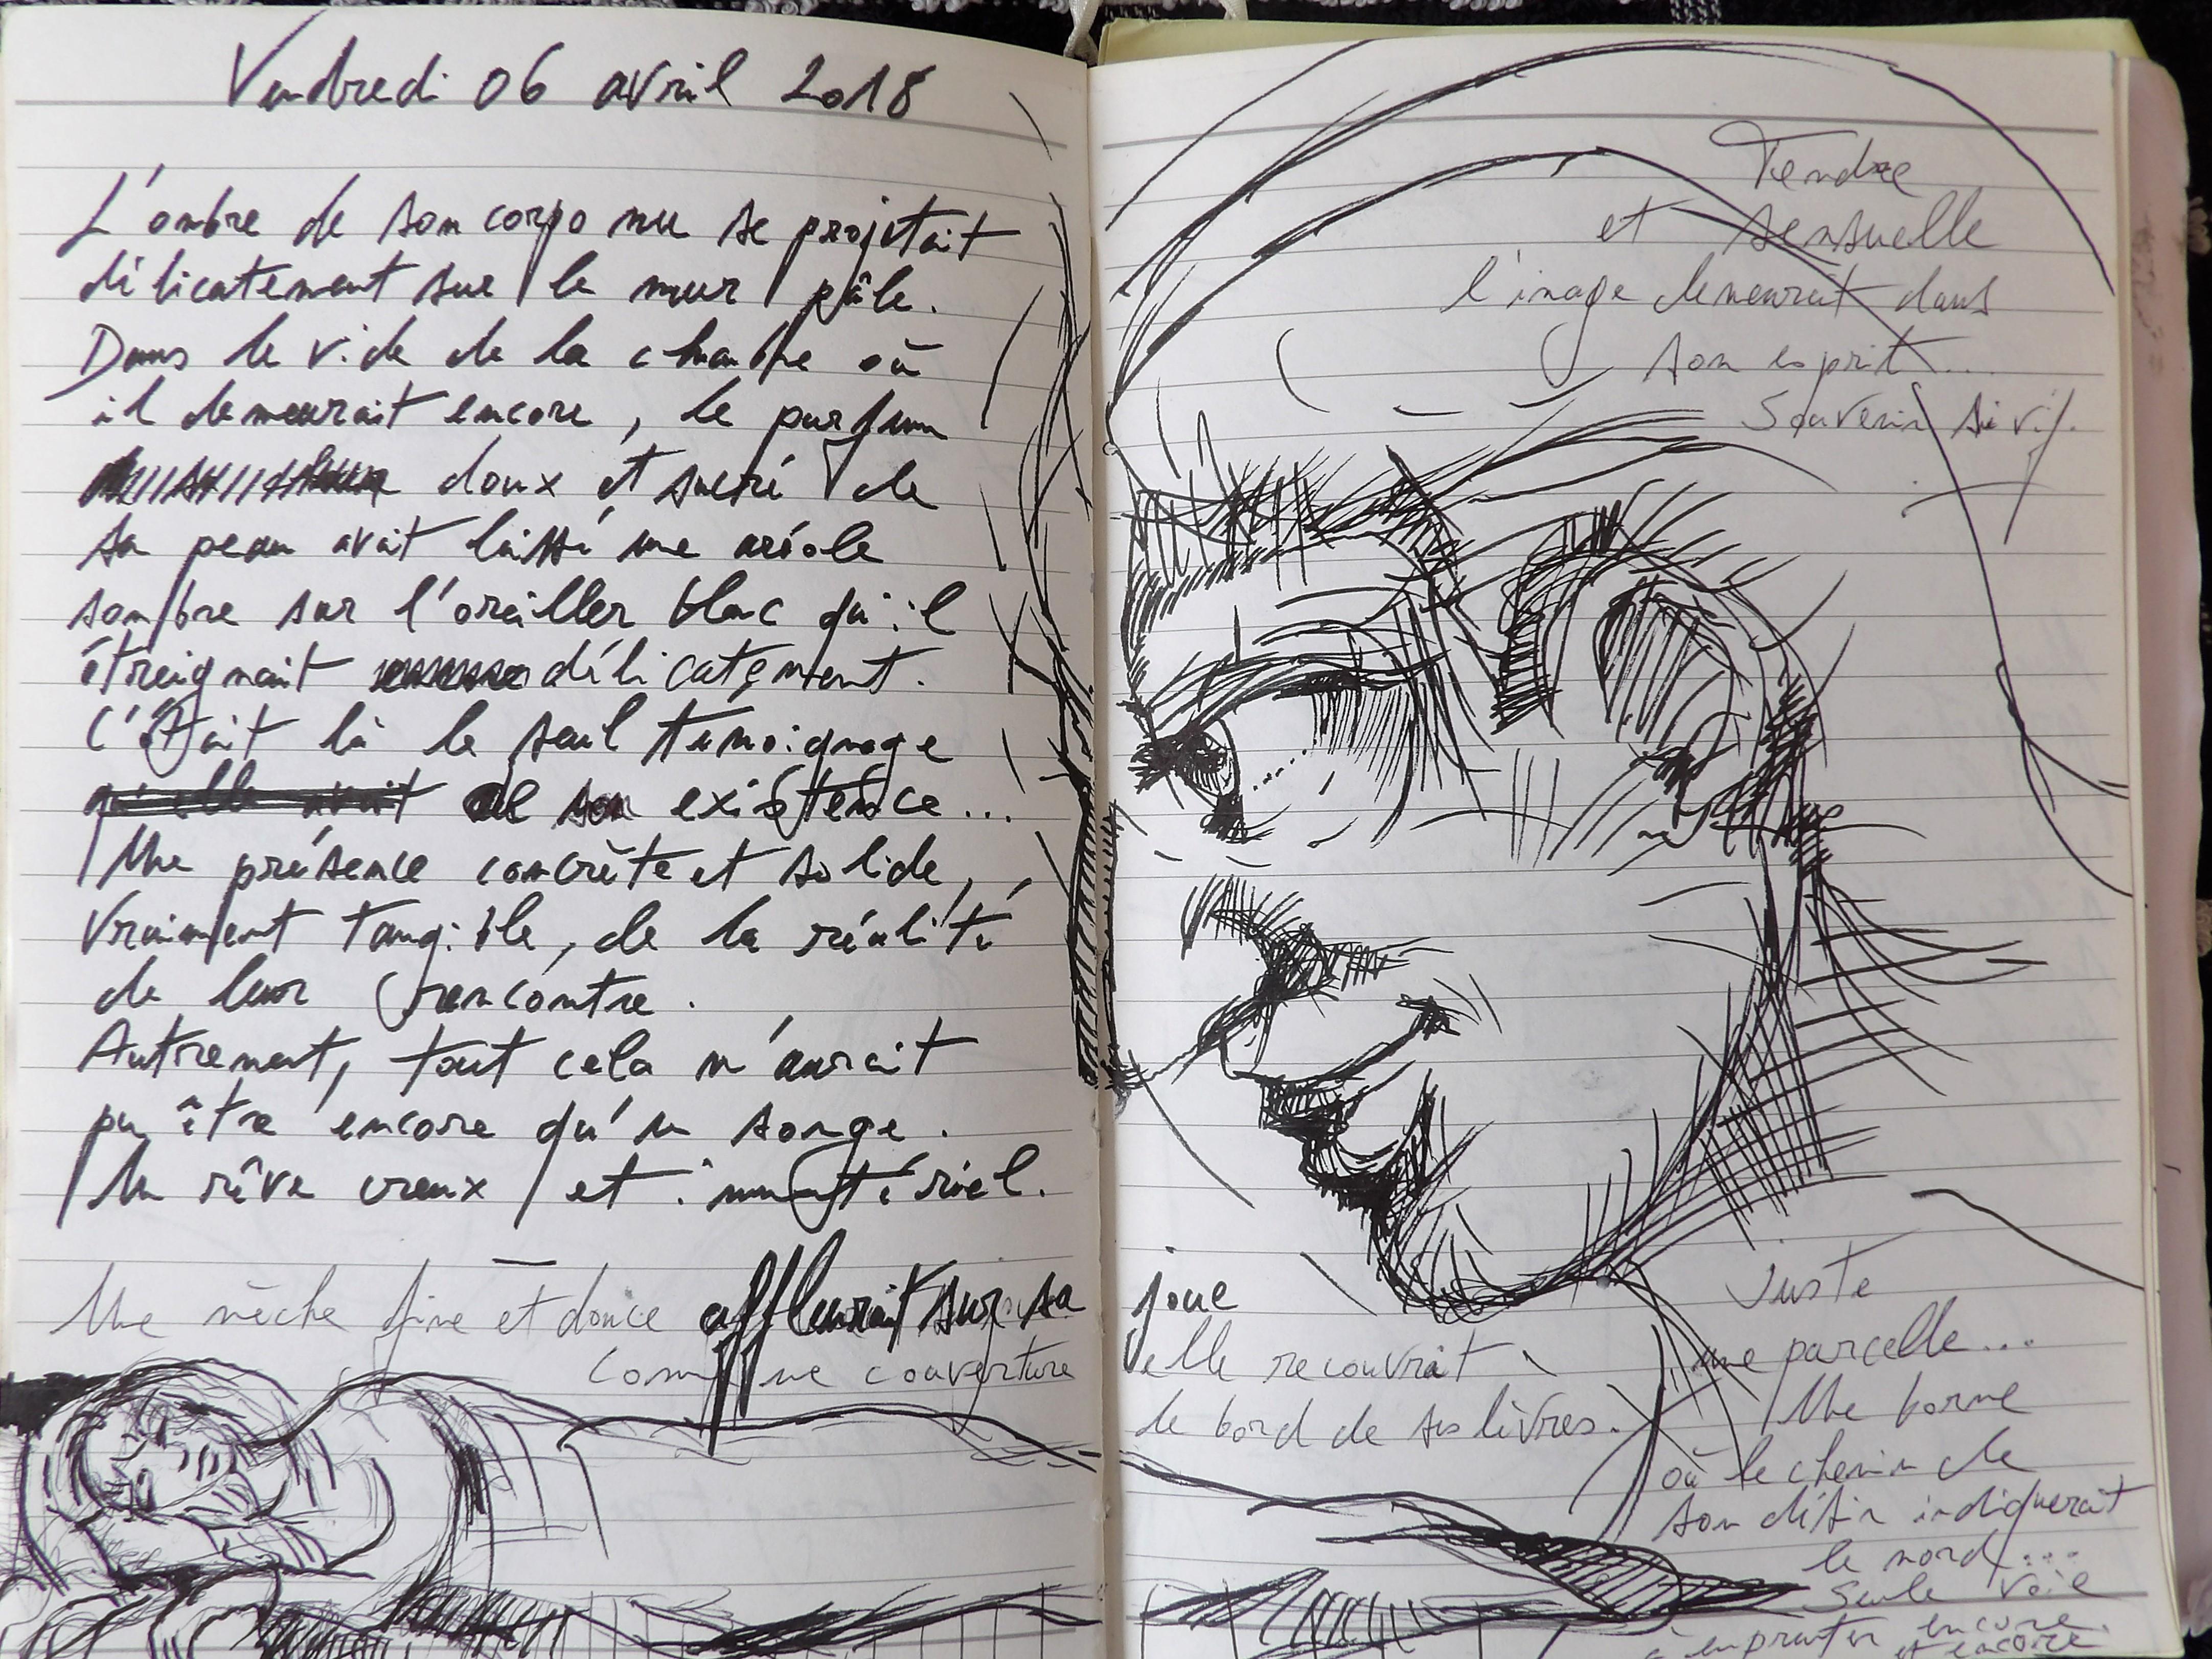 Vendredi 06 avril 2018
L'ombre de son corps nu se projetait
délicatement sur le mur pâle.
Dans le vide de la chambre où
il demeurait encore, le parfum
doux et sucré de
sa peau avait laissé une aréole
sombre sur l'oreiller blanc qu'il
étreignait délicatement.
C'était là le seul témoignage
qu'elle avait de son existence...
Une présence concrète et solide,
vraiment tangible, de la réalité
de leur rencontre.
Autrement, tout cela n'aurait
pu être encore qu'un songe.
Un rêve creux et immatériel.
Une mèche fine et douce affleurait sur sa joue
comme une couverture elle recouvrait
le bord de ses lèvres.
Tendre
et sensuelle
l'image demeurait dans
son esprit...
Souvenir si vif.
Juste
une parcelle...
Une borne
où le chemin de
son désir indiquerait
le nord...
Seule voie
à emprunter encore
et encore